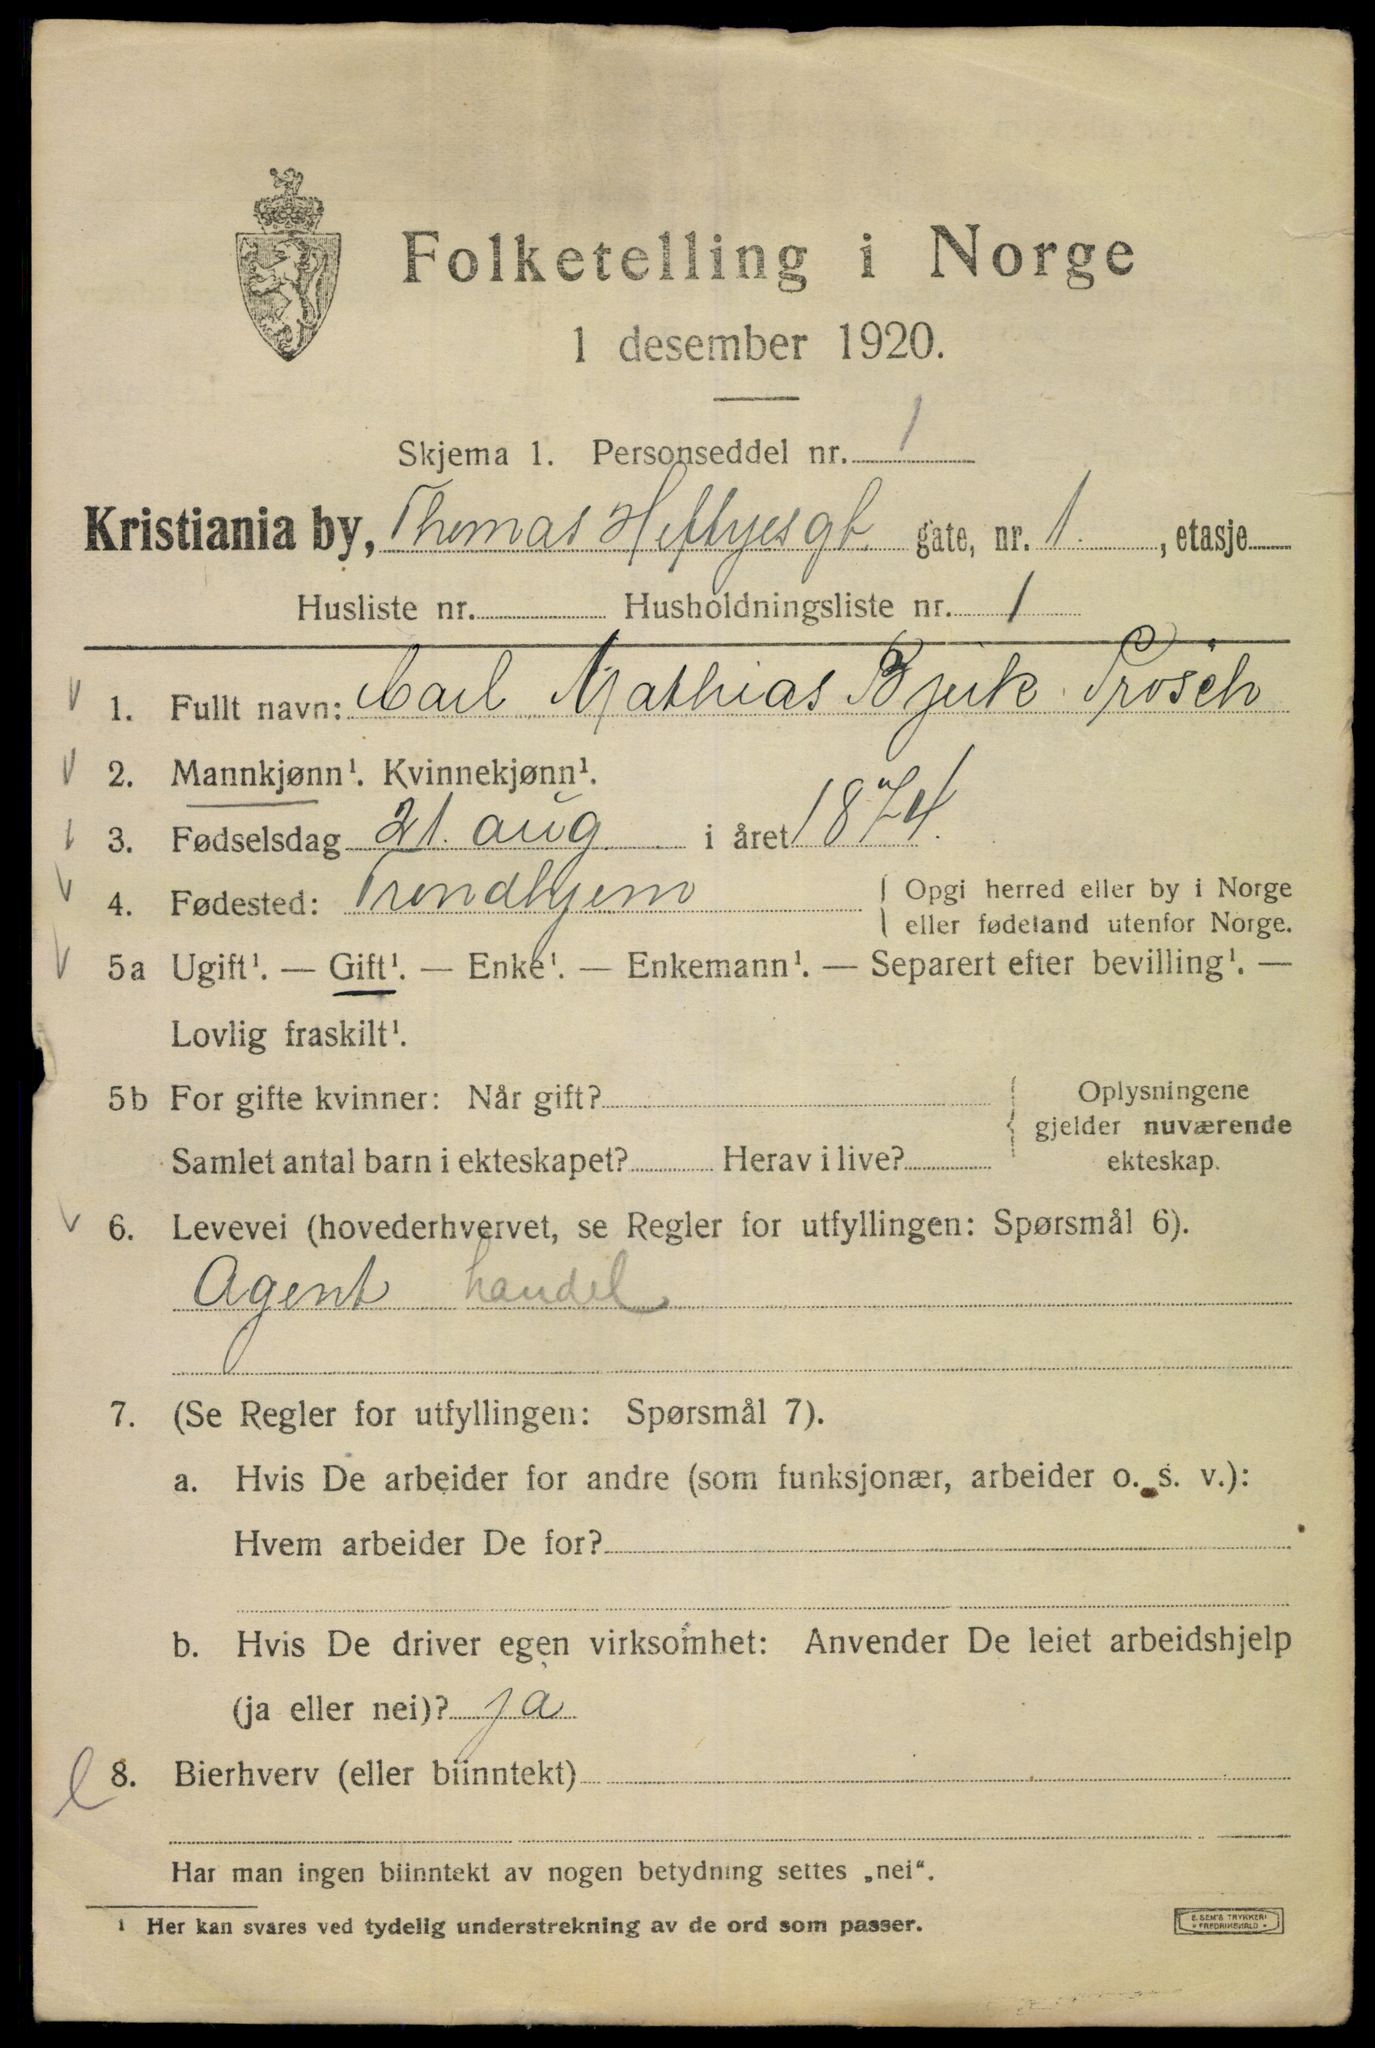 Folketelling i Norge
1 desember 1920.
Skjema 1. Personseddel nr. 1
Kristiania by, Thomas Heftyesgt. gate, nr. 1. , etasje
Husliste nr. Husholdningsliste nr. 1
1. Fullt navn: Carl Mathias Bjerk Prösch
2. Mannkjønn¹. Kvinnekjønn¹.
3. Fødselsdag 21. aug. i året 1874.
4. Fødested: Trondhjem { Opgi herred eller by i Norge
eller fødeland utenfor Norge.
5a Ugift¹. — Gift¹. — Enke¹. — Enkemann¹. — Separert efter bevilling¹. —
Lovlig fraskilt¹.
5b For gifte kvinner: Når gift? { Oplysningene
gjelder nuværende
Samlet antal barn i ekteskapet? Herav i live? ekteskap.
6. Levevei (hovederhvervet, se Regler for utfyllingen: Spørsmål 6).
Agent handel
7. (Se Regler for utfyllingen: Spørsmål 7).
a. Hvis De arbeider for andre (som funksjonær, arbeider o. s. v.):
Hvem arbeider De for?
b. Hvis De driver egen virksomhet: Anvender De leiet arbeidshjelp
(ja eller nei)? ja
8. Bierhverv (eller biinntekt)
Har man ingen biinntekt av nogen betydning settes „nei“.
¹ Her kan svares ved tydelig understrekning av de ord som passer.
E. SEM'S TRYKKERI
FREDRIKSHALD